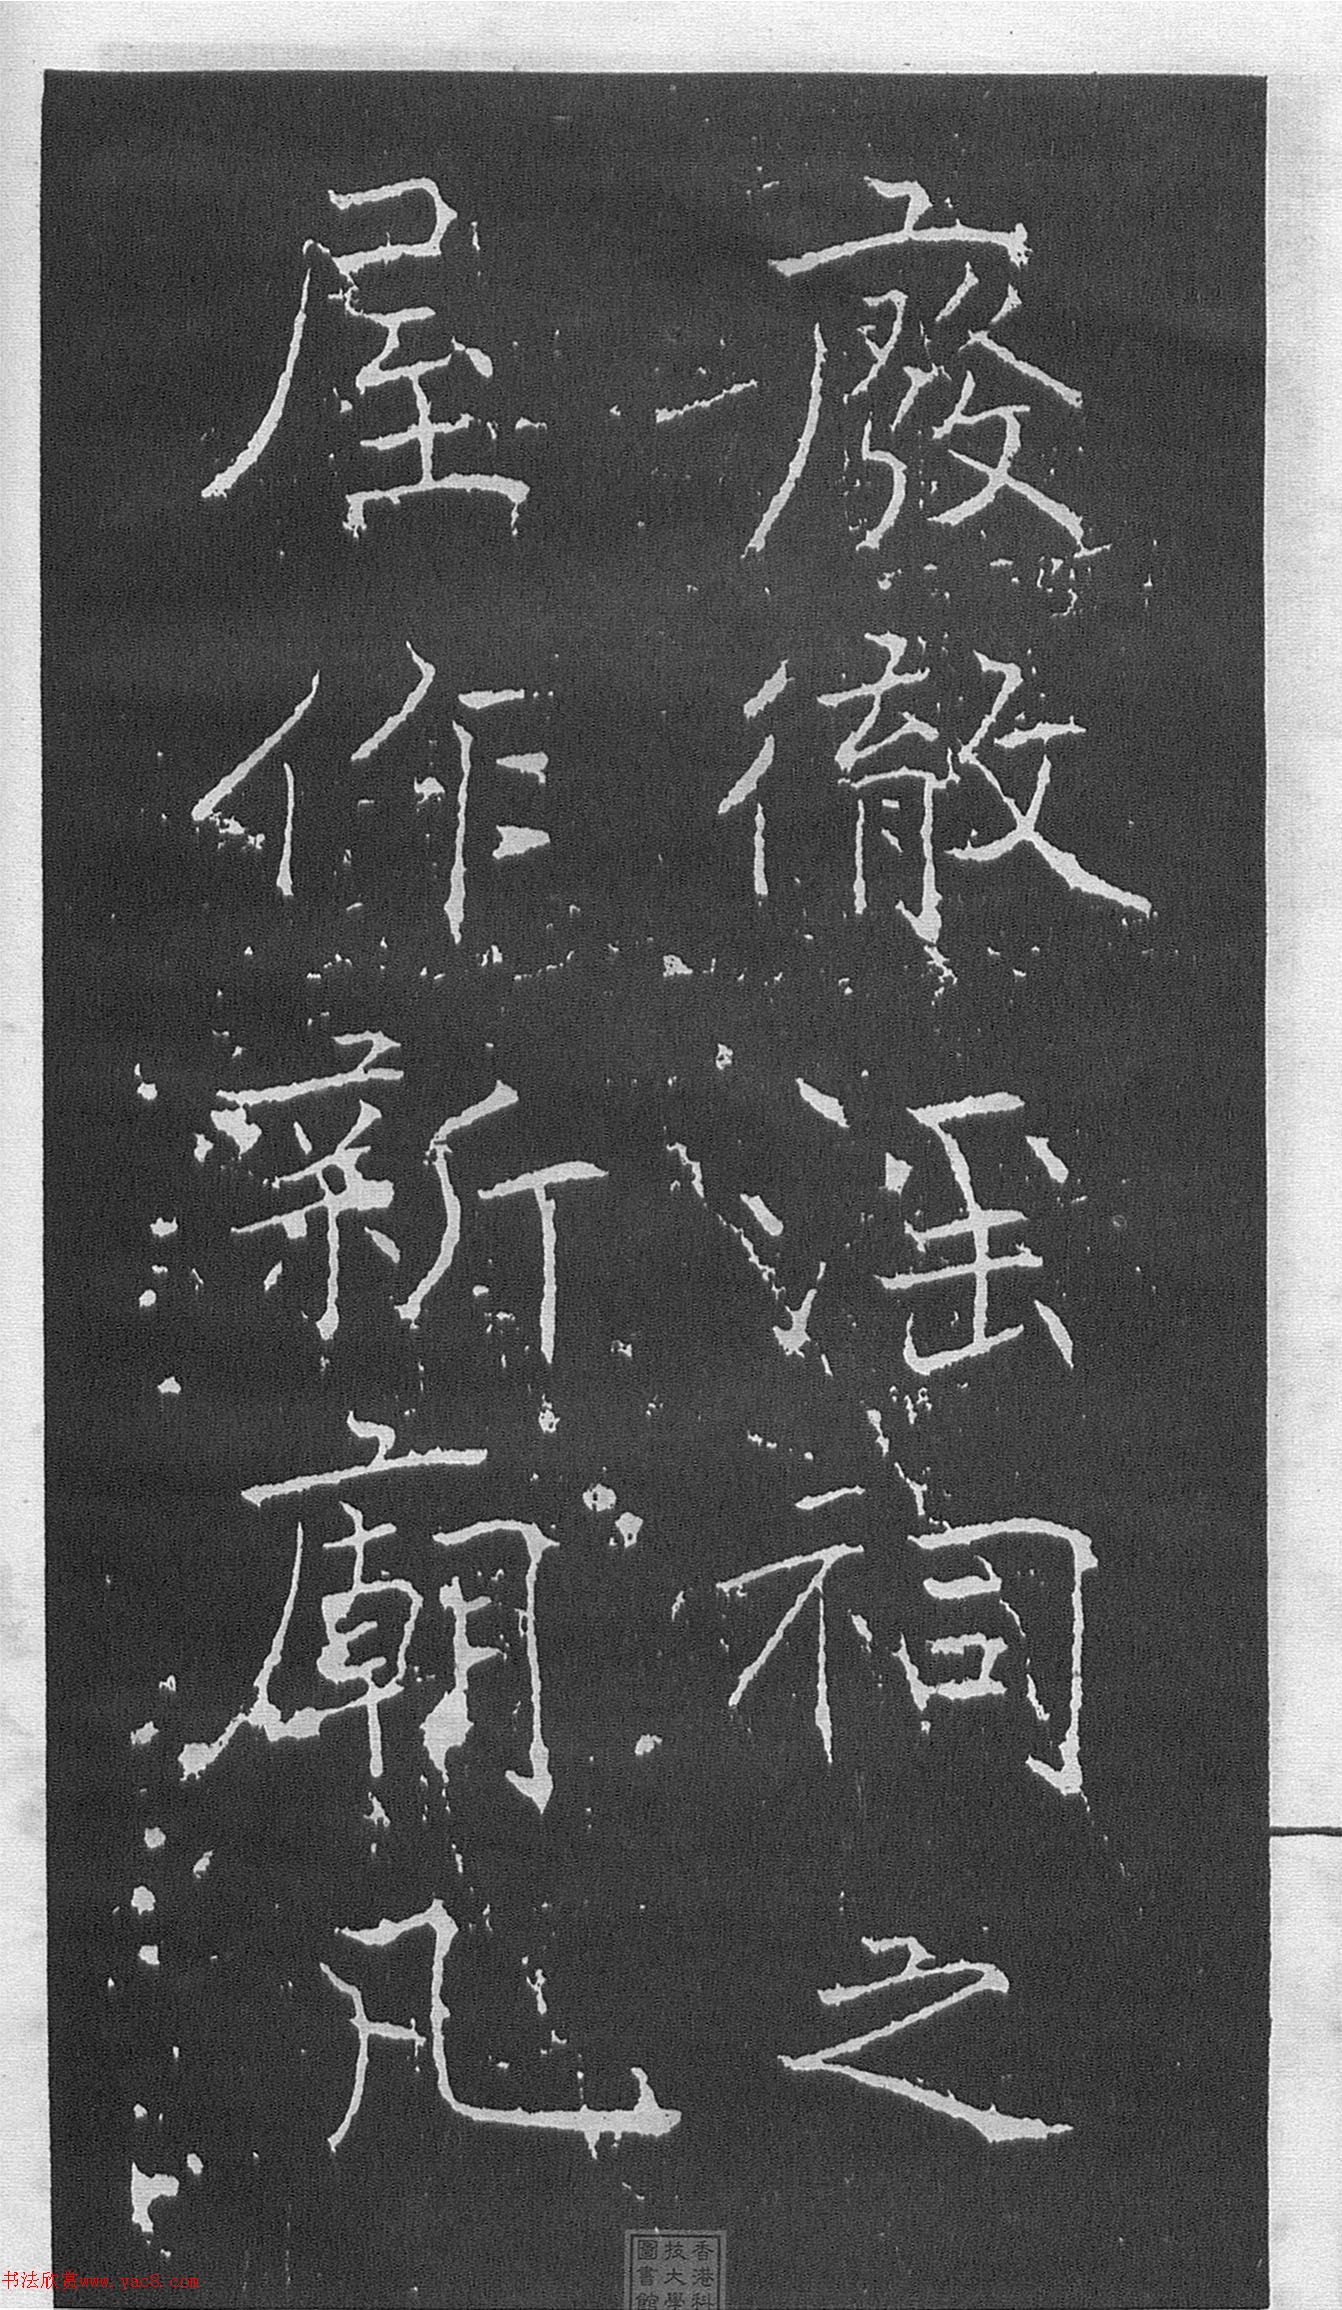 廢徹淫祠之
屋作新廟凡
香港科
技大學
圖書館
书法欣赏www.yac8.com